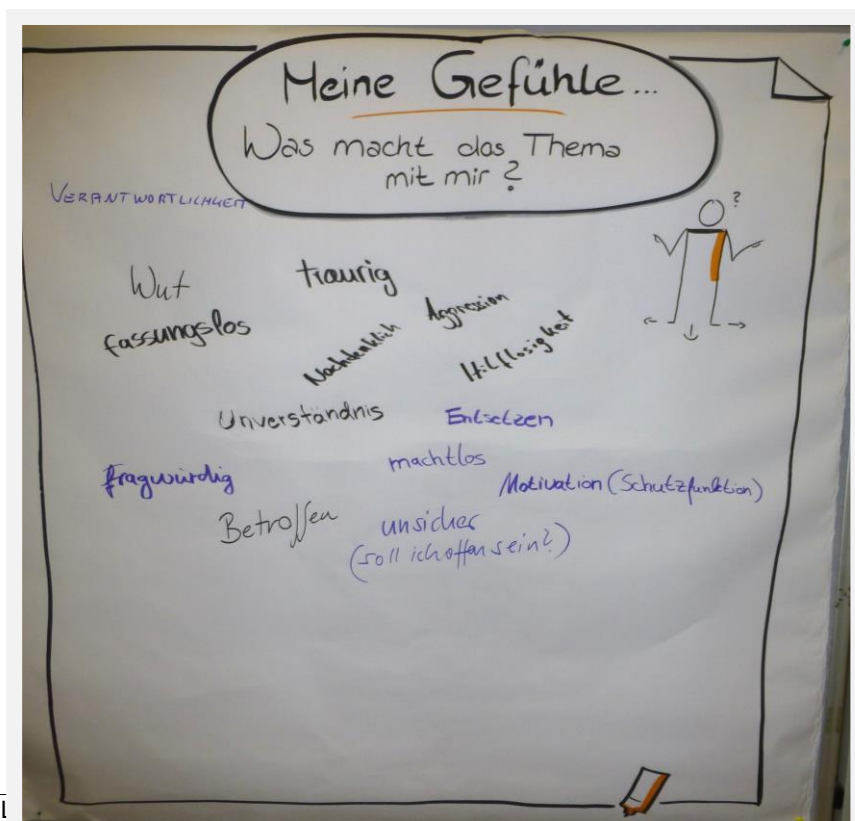 Meine Gefühle...
Was macht das Thema
mit mir?
VERANTWORTLICHKEIT
?
Wut
traurig
Aggression
fassungslos
Nachdenklich
Hilflosigkeit
Unverständnis
Entsetzen
machtlos
fragwürdig
Motivation (Schutzfunktion)
Betroffen
unsicher
(soll ich offen sein?)